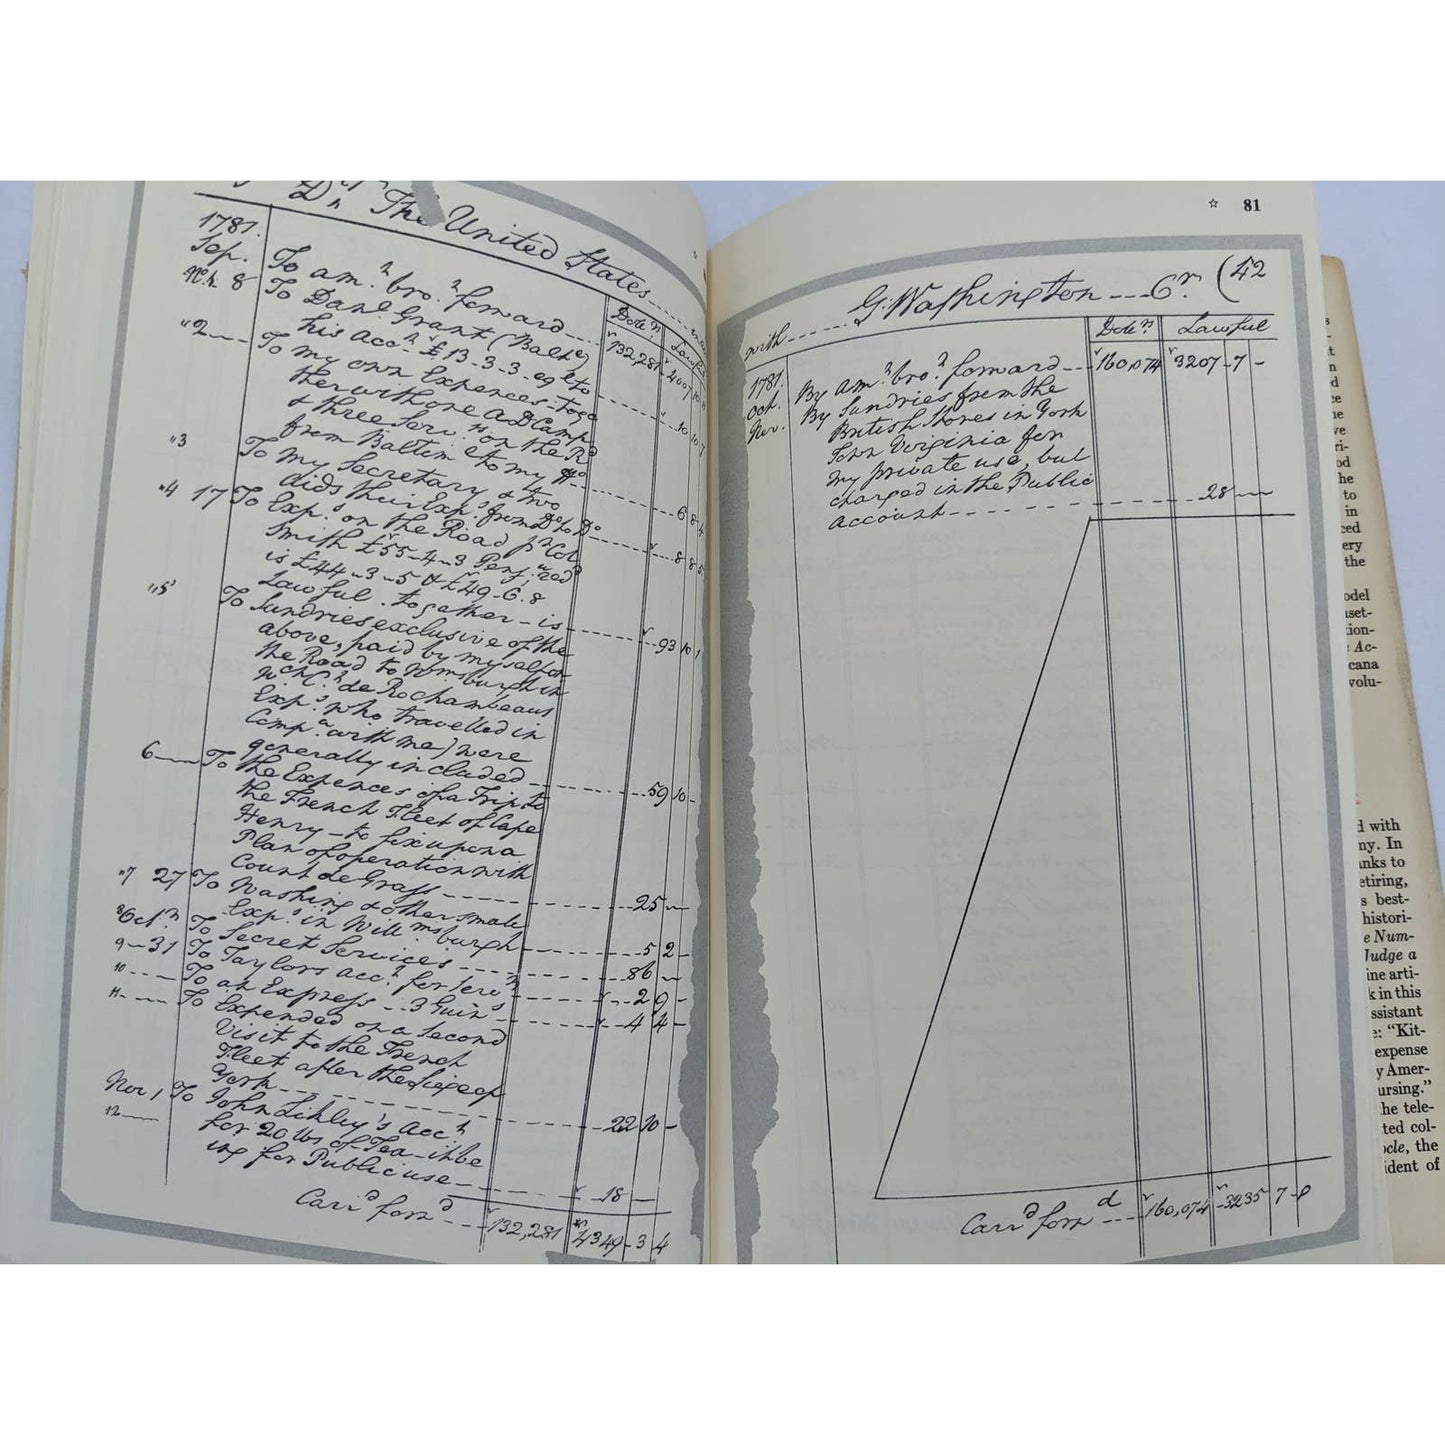 Dr. The United States
1781.
Sep. To amt. brot. forward 132,281 4007 10
No. 1. 8 To Danl. Grant (Balte)
his Acct. £13-3-3. eql. to 10 10 7
"2 To my own Expences-toge
ther with one A D Camp
& three Servts. on the Rd
from Baltime to my Ho 6 8 4
"3 To my Secretary & two
aids their Exps. from Do to Do 8 8 5
"4 17 To Exps. on the Road pr. Col
Smith £55-4-3 Pens.
is £44-3-5 & £49-6.8
Lawful. together-is 93 10 1
"5 To Sundries exclusive of the
above, paid by myself on
the Road to Wmsburgh in
wch Ct. de Rochambeaus
Exps. who travelled in
Compa. with me) were
generally included 59 10 -
6 To the Expences of a Trip to
the French Fleet of Cape
Henry-to fix upon a
Plan of operation with
Count de Grass 25
"7 27 To Washing & other small
Exps. in Will.msburgh 5 2 -
8 Oct. To Secret Services 86
9-31 To Taylors acct. for Servts 2 9 -
10 To an Express -- 3 Guins 4 4 -
11 To Expended on a second
Visit to the French
Fleet after the Siege of
York 22 10 -
Nov. 1 To John Likley's acct.
12 for 20 lbs of Tea-it be
ing for Public use 18
Carrd. ford. 132,281 4349-3 4
☆ 81
G. Washington Cr. (42
with Dolrs. Lawful
1781.
Oct. By Amt. brot. forward 160,074 3207-7-
Nov. By Sundries from the
British Stores in York
Town Virginia for
my private use, but
charged in the Public
account 28
Carrd. ford 160,074 3235 7-8
d with
ny. In
anks to
etiring,
s best-
histori-
e Num-
Judge a
ine arti-
k in this
ssistant
e: "Kit-
expense
y Amer-
ursing."
he tele-
ted col-
ocle, the
ident of